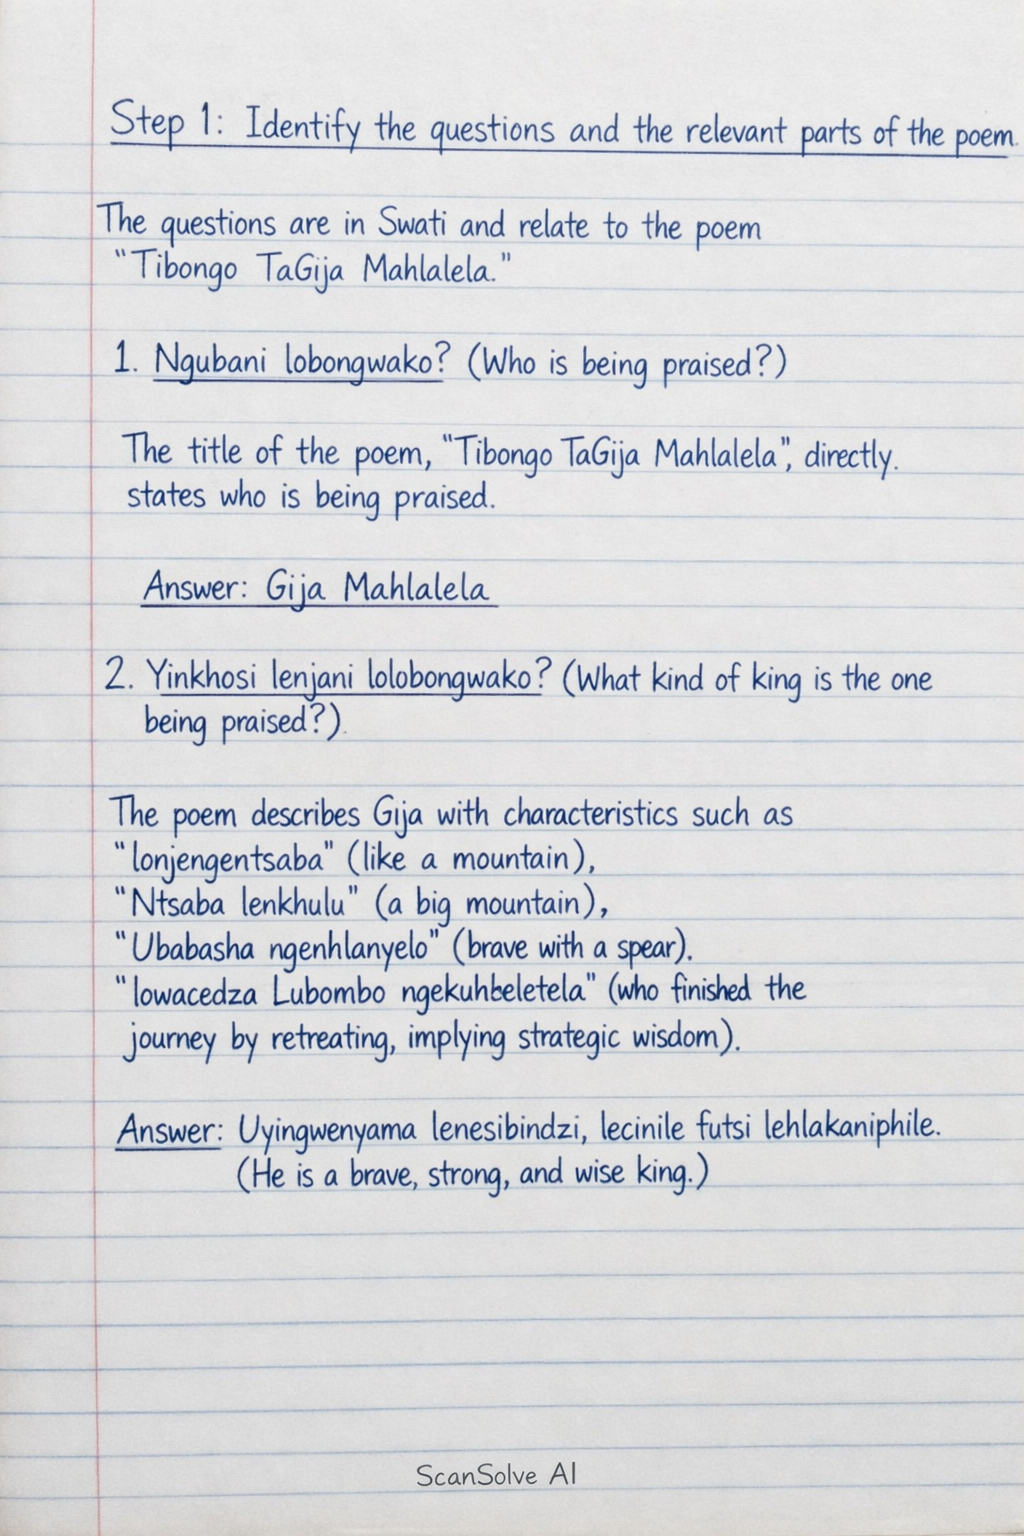 Step 1: Identify the questions and the relevant parts of the poem.
The questions are in Swati and relate to the poem
"Tibongo TaGija Mahlalela."
1. Ngubani lobongwako? (Who is being praised?)
The title of the poem, "Tibongo TaGija Mahlalela", directly.
states who is being praised.
Answer: Gija Mahlalela
2. Yinkhosi lenjani lolobongwako? (What kind of king is the one
being praised?).
The poem describes Gija with characteristics such as
"lonjengentsaba" (like a mountain),
"Ntsaba lenkhulu" (a big mountain),
"Ubabasha ngenhlanyelo" (brave with a spear).
"lowacedza Lubombo ngekuhbeletela" (who finished the
journey by retreating, implying strategic wisdom).
Answer: Uyingwenyama lenesibindzi, lecinile futsi lehlakaniphile.
(He is a brave, strong, and wise king.)
ScanSolve AI